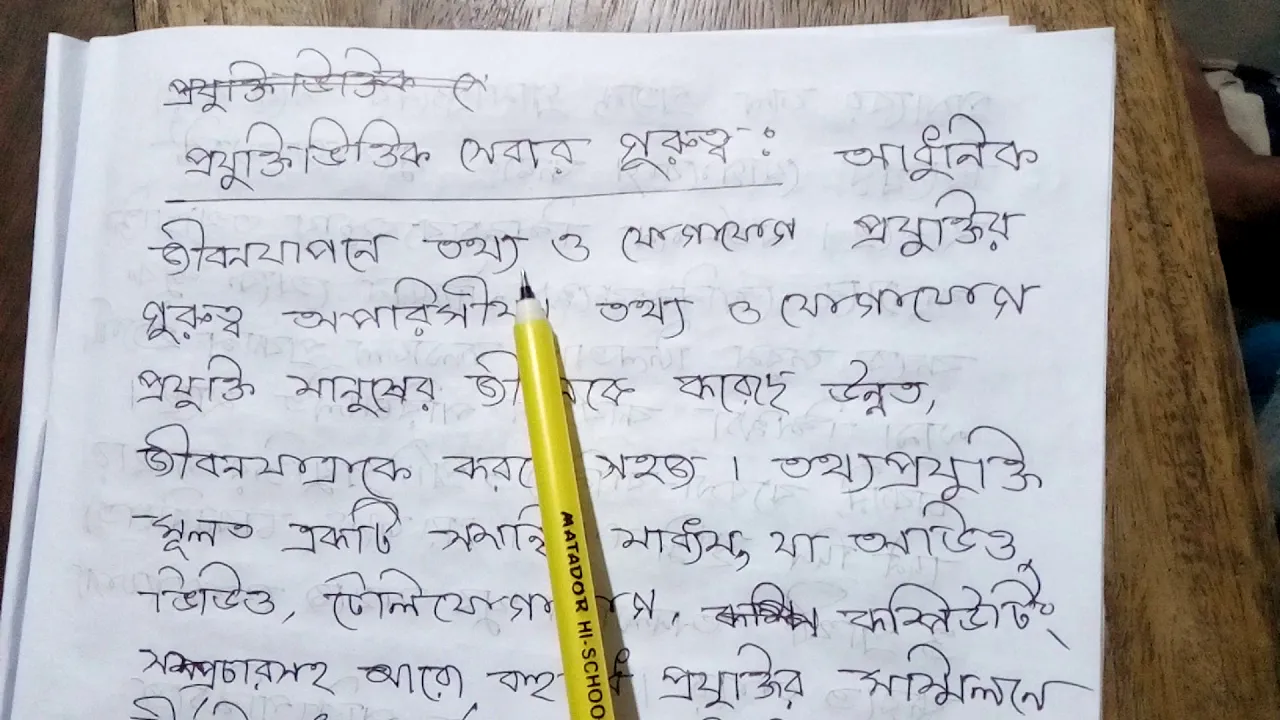 প্রযুক্তিভিত্তিক সে
প্রযুক্তিভিত্তিক সেবার গুরুত্ব : আধুনিক
জীবনযাপনে তথ্য ও যোগাযোগ প্রযুক্তির
গুরুত্ব অপরিসীম। তথ্য ও যোগাযোগ
প্রযুক্তি মানুষের করেছে উন্নত,
জীবনযাত্রাকে সহজ । তথ্যপ্রযুক্তি
মূলত একটি মাধ্যম, যা অডিও,
ভিডিও, কম্পিউটিং,
সম্প্রচারসহ আরো প্রযুক্তির সম্মিলনে
MATADOR HI-SCHOO